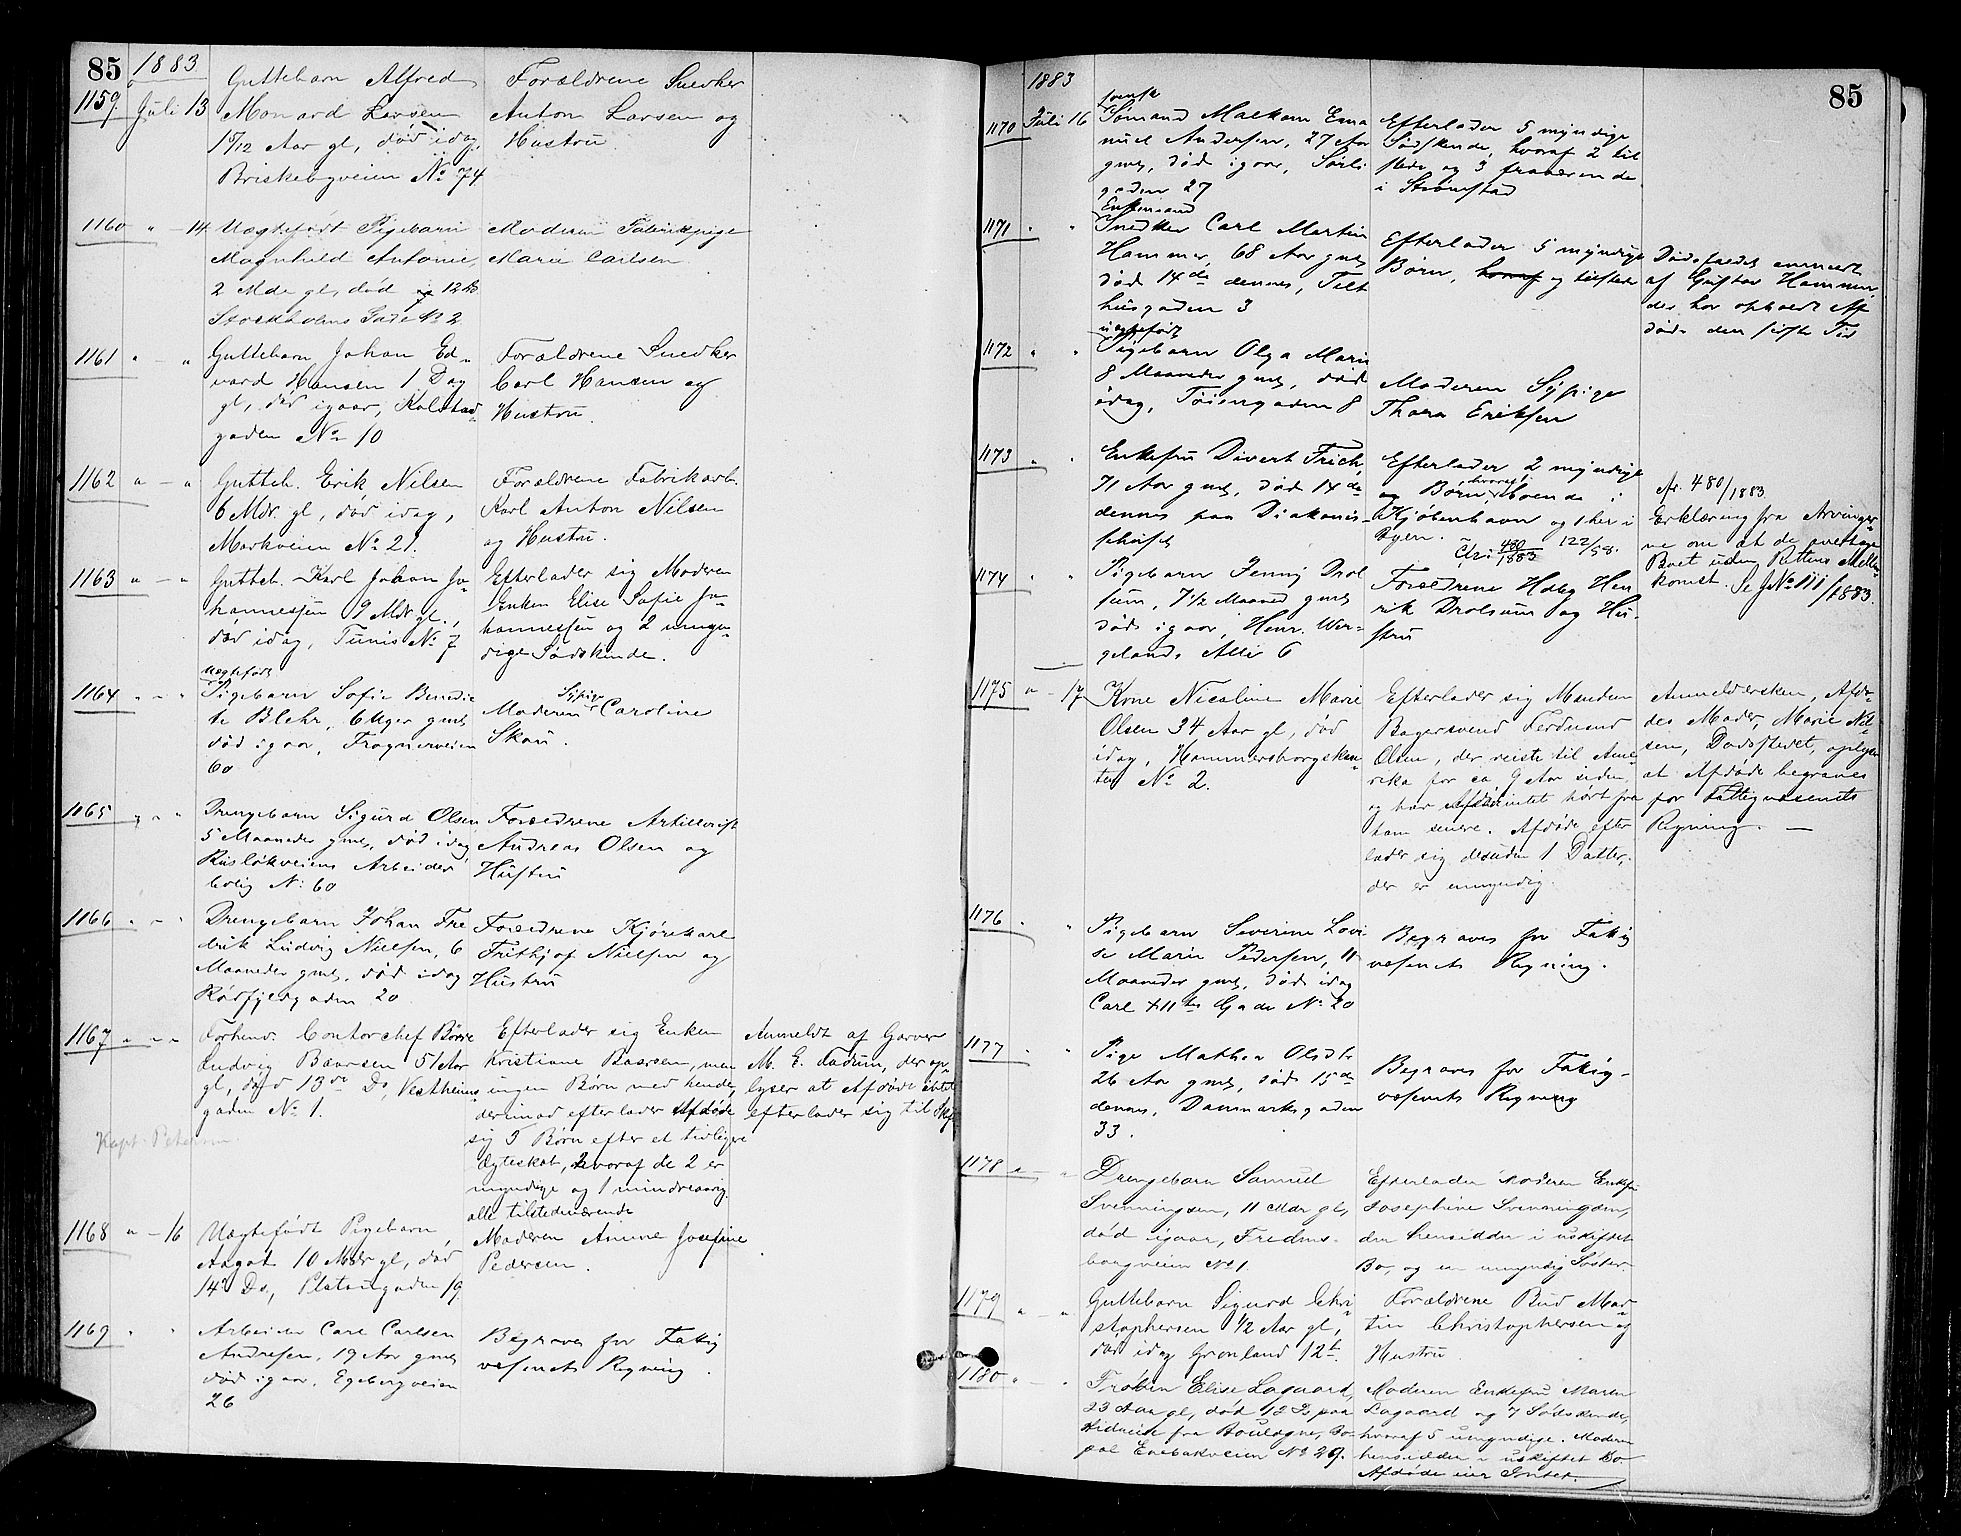 85
1883
1159
Juli 13
Guttebarn Alfred
Monard Larsen
15/12 Aar gl, død idag,
Briskebyveien No 74
Forældrene Snedker
Anton Larsen og
Hustru
1160 " - 14
Uægtefødt Pigebarn
Magnhild Antonie,
2 Mdr gl, død 12 ds
Stockholms Gade No 2
Moderen Fabrikpige
Marie Carlsen
1161 " "
Guttebarn Johan Ed-
vard Hansen 1 Dag
gl, død igaar, Kalstad
gaden No 10
Forældrene Snedker
Carl Hansen og
Hustru.
1162 " - "
Gutteb. Erik Nilsen
6 Mdr. gl, død idag,
Markveien No 21.
Forældrene Fabrikarb.
Karl Anton Nilsen
og Hustru.
1163 " - "
Gutteb. Karl Johan Jo-
hannessen 9 Mdr gl.,
død idag, Tunis No 7
Efterlader sig Moderen
Enken Elise Sofie Jo-
hannessen og 2 umyn-
dige Sødskende.
1164 " - "
uægtefødt
Pigebarn Sofie Benedic
te Blehr, 6 Uger gml
død igaar, Frognerveien
60
Sypige
Moderen Caroline
Skou.
1165 " - "
Drengebarn Sigurd Olsen
5 Maaneder gml, død idag
Ruslökveiens Arbeider
bolig No 60
Forældrene Artillerist
Andreas Olsen og
Hustru
1166 " - "
Drengebarn Johan Fre
drik Ludvig Nielsen, 6
Maaneder gml, død idag
Rødfjeldgaden 20
Forældrene Kjørekarl
Frithjof Nielsen og
Hustru
1167 " - "
Forhenv. Contorchef Børre
Ludvig Baarsen 51 Aar
gl, død 13de Ds, Vestheims
gaden No 1.
Efterlader sig Enken
Kristiane Baarsen, men
ingen Børn med hende,
derimod efterlader Afdøde
sig 5 Børn efter et tidligere
Ægteskab, hvoraf de 2 er
myndige og 1 mindreaarig
alle tilstedeværende
Anmeldt af Garver
M. E. Fadum, der op-
lyser at Afdøde intet
efterlader sig til Skf
Kapt. Petersen
1168 " - 16
Uægtefødt Pigebarn,
Aagot 10 Mdr gl, død
14de Ds, Platougaden 19.
Moderen Anne Josefine
Pedersen.
1169 " "
Arbeider Carl Carlsen
Andresen, 19 Aar gml
død igaar, Egebergveien
26
Begraves for Fattig
væsenets Regning.
85
1883
1170 Juli 16
svensk
Sømand Malkom Ema
nuel Andersen, 27 Aar
gml, død igaar, Sørli
gaden 27
Efterlader 5 myndige
Sødskende, hvoraf 2 til
stede og 3 fraværende
i Strømstad
1171 " "
Enkemand
Snedker Carl Martin
Hammer, 68 Aar gml,
død 14de dennes, Telt
husgaden 3
Efterlader 5 myndige
Børn, hvoraf og tilstede
Dødsfaldet anmeldt
af Gustav Hammer,
der har ophaalt Af
døde den sidste Tid
1172 " "
uægtefødt
Pigebarn Olga Marie
8 Maaneder gml, død
idag, Töiengaden 8
Moderen Sypige
Thora Eriksen
1173 " "
Enkefru Divert Frich,
71 Aar gml, død 14de
dennes paa Diakonis-
sehuset
Efterlader 2 myndige
og Børn hvoraf boende i
Kjøbenhavn og 1 her i
Byen. 122/58.
Chr: 480/1883
Nr. 480/1883.
Erklæring fra Arvinger-
ne om at de overtage
Boet uden Rettens Mellem
komst. Se J No 111/1883.
1174 " "
Pigebarn Jenny Drol
sum, 7 1/2 Maaned gml
død igaar, Henr. Wer-
gelands Allé 6
Forældrene Hdlsg Hen
rik Drolsum og Hu-
stru
1175 " - 17
Kone Nicoline Marie
Olsen 34 Aar gl, død
idag, Hammersborgsken-
ten No 2.
Efterlader sig Manden
Bagersvend Ferdinand
Olsen, der reiste til Ame-
rika for ca 9 Aar siden,
og har Afdøde intet hørt fra
ham senere. Afdøde efter
lader sig desuden 1 Datter,
der er umyndig.
Anmeldersken, Afdø-
des Moder, Marie Niel-
sen, Dødsstedet, oplyser
at Afdøde begraves
for Fattigvæsenets
Regning. —
1176 " "
Pigebarn Severine Lovi
se Marie Pedersen, 11
Maaneder gml, død idag
Carl XIItes Gade No 20
Begraves for Fattig
væsenets Regning.
1177 " "
Pige Mathea Olsdtr
26 Aar gml, død 15de
dennes, Danmarksgaden
33.
Begraves for Fattig-
væsenets Regning
1178 " - "
Drengebarn Samuel
Svenningsen, 11 Mdr gl,
død igaar, Fredens-
borgveien No 1.
Efterlader Moderen Enkefru
Josephine Svenningsen,
der hensidder i uskiftet
Bo, og en umyndig Søster.
1179 " - "
Guttebarn Sigurd Chri-
stophersen 1/2 Aar gl,
død idag Grønland 12b.
Forældrene Bud Mar-
tin Christophersen og
Hustru
1180 " - "
Frøken Elise Lagaard,
23 Aar gl, død 12 Ds paa
Hidreise fra Boulogne, Bo-
pæl Enebakveien No 29.
Moderen Enkefru Maren
Lagaard og 7 Sødskende,
hvoraf 5 umyndige. Moderen
hensidder i uskiftet Bo
Afdøde eier Intet.